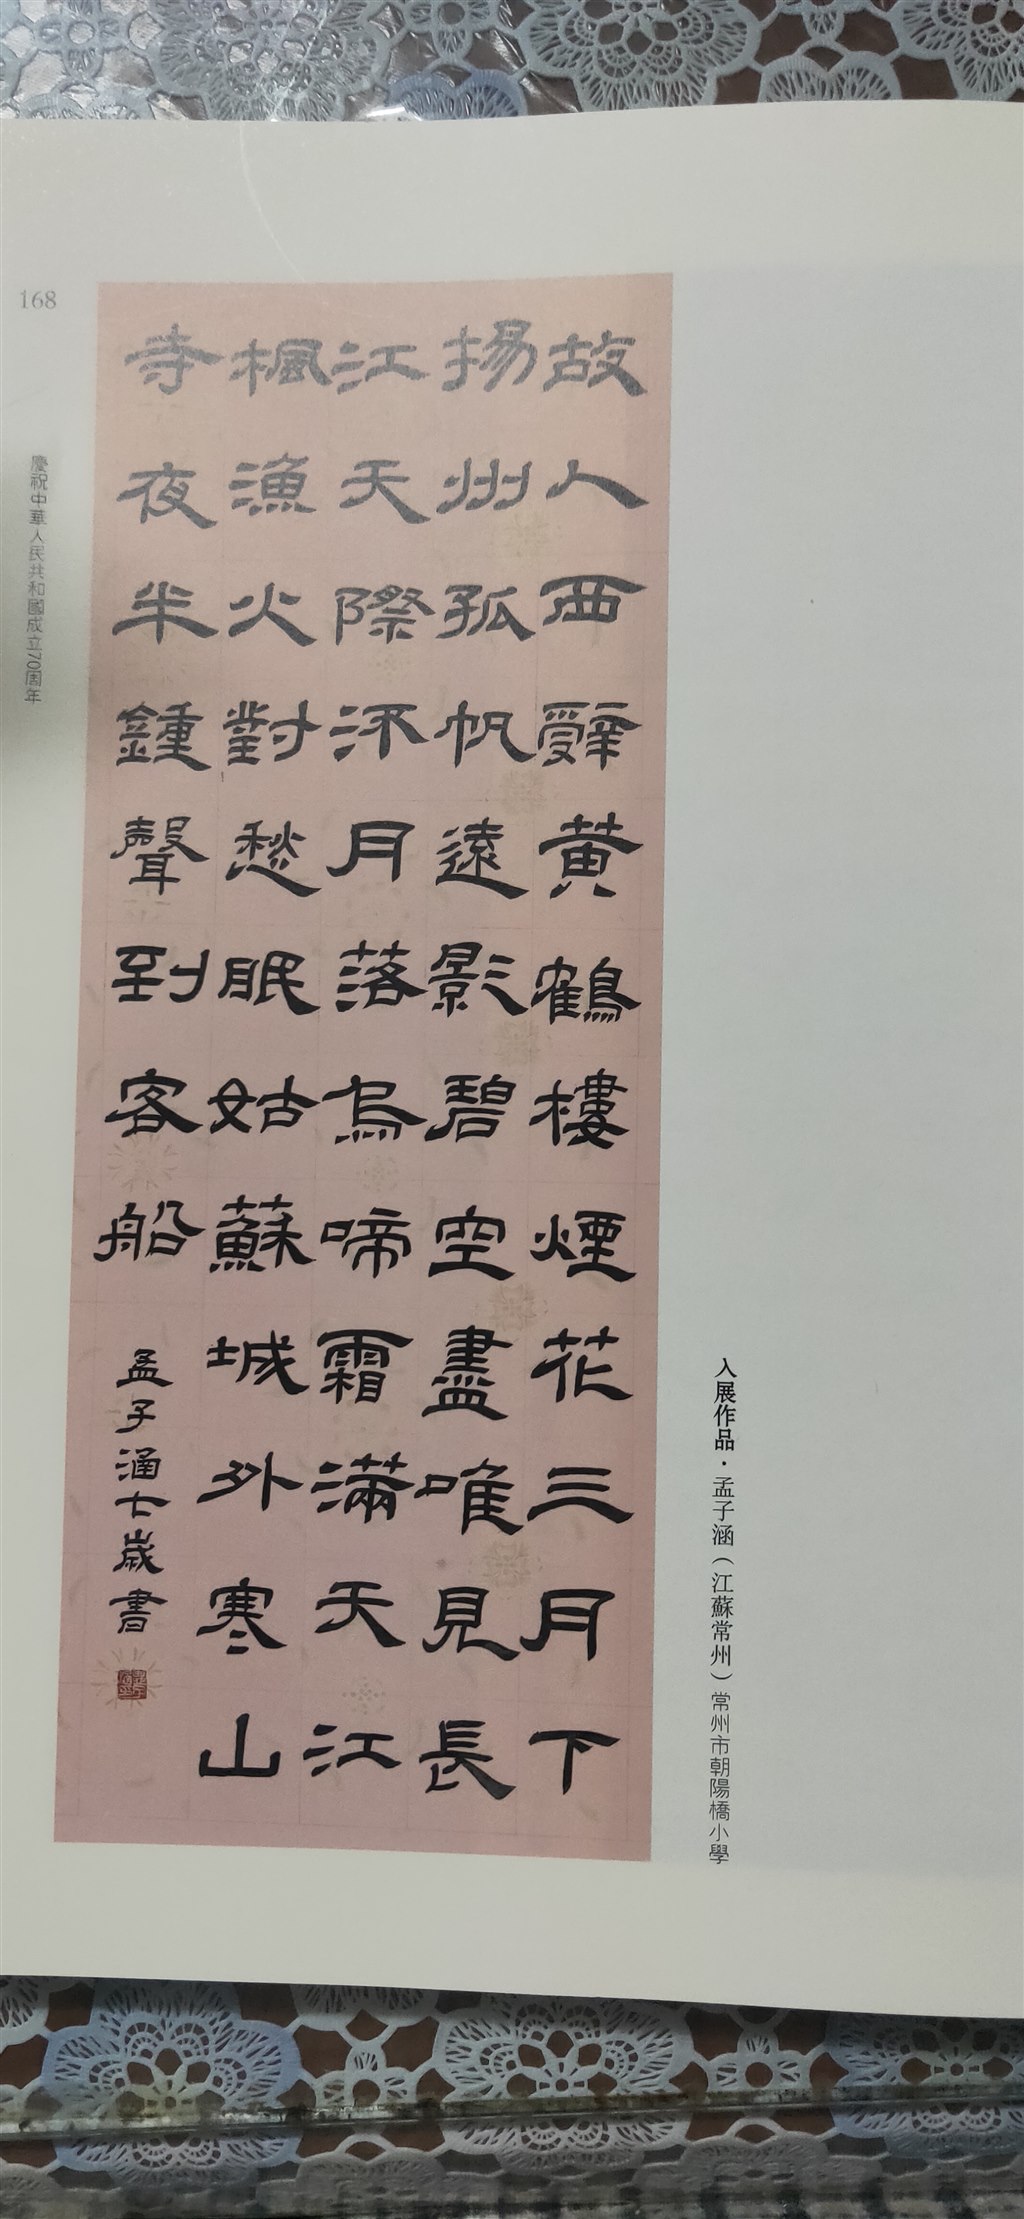 故人西辭黄鶴樓煙花三月下
揚州孤帆遠影碧空盡唯見長
江天際流月落烏啼霜滿天江
楓漁火對愁眠姑蘇城外寒山
寺夜半鍾聲到客船
孟子涵七歲書
入展作品·孟子涵（江蘇常州）常州市朝陽橋小學
168
慶祝中華人民共和國成立70周年